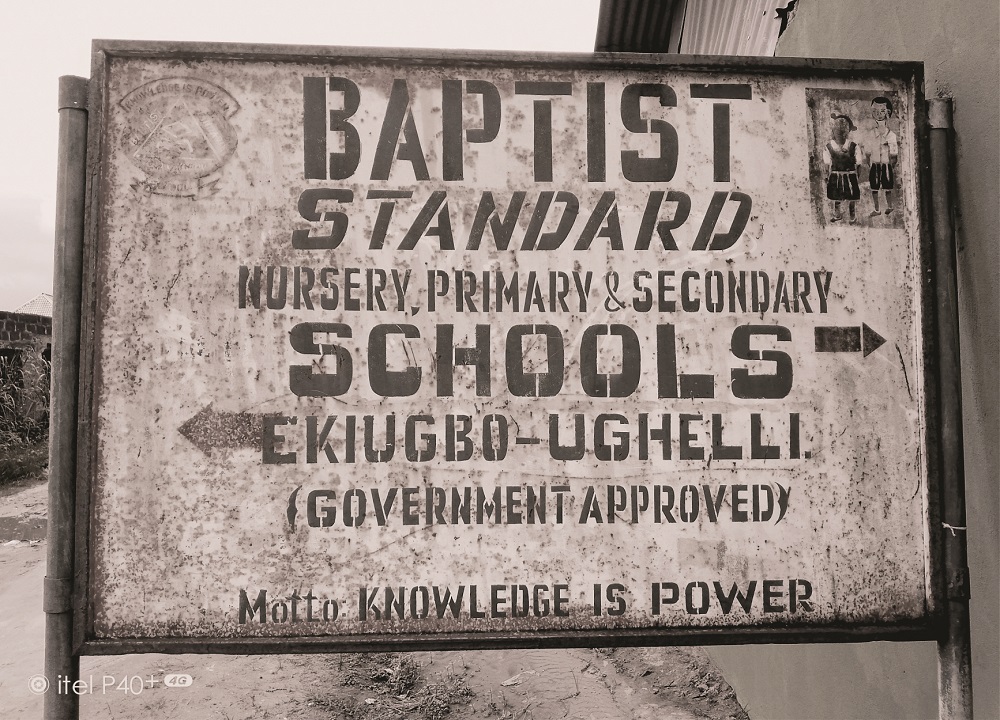 KNOWLEDGE IS POWER
BAPTIST
STANDARD
NURSERY, PRIMARY & SECONDARY
SCHOOLS
EKIUGBO-UGHELLI.
(GOVERNMENT APPROVED)
Motto: KNOWLEDGE IS POWER
itel P40+ 4G